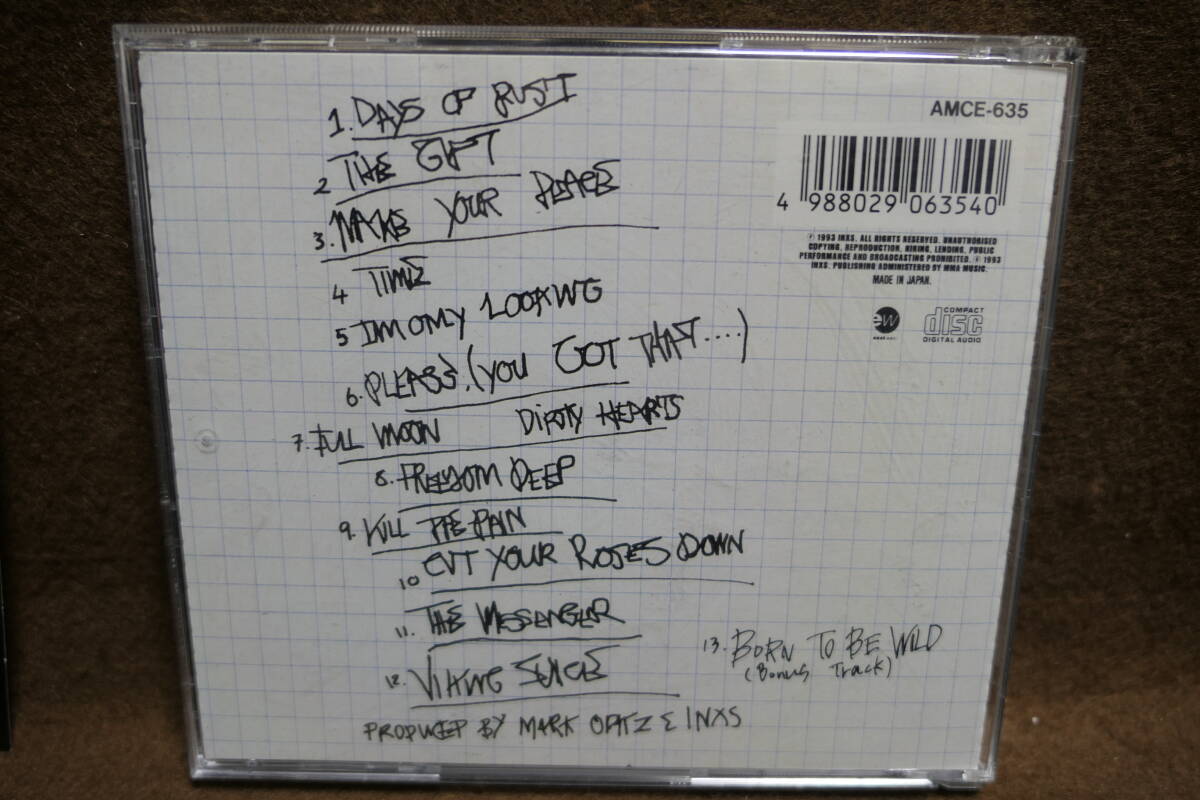 1. DAYS OF RUST
2 THE GIFT
3. MAKE YOUR PEACE
4 TIME
5 IM ONLY LOOKING
6. PLEASE. (YOU GOT THAT....)
7. FULL MOON DIRTY HEARTS
8. FREEDOM DEEP
9. KILL THE PAIN
10 CUT YOUR ROSES DOWN
11. THE MESSENGER
12. VIKING JUICE
13. BORN TO BE WILD
(Bonus Track)
PRODUCED BY MARK OPITZ & INXS
AMCE-635
4 988029 063540
℗ 1993 INXS. ALL RIGHTS RESERVED. UNAUTHORISED
COPYING, REPRODUCTION, HIRING, LENDING, PUBLIC
PERFORMANCE AND BROADCASTING PROHIBITED. © 1993
INXS. PUBLISHING ADMINISTERED BY MMA MUSIC.
MADE IN JAPAN.
ew
COMPACT
disc
DIGITAL AUDIO